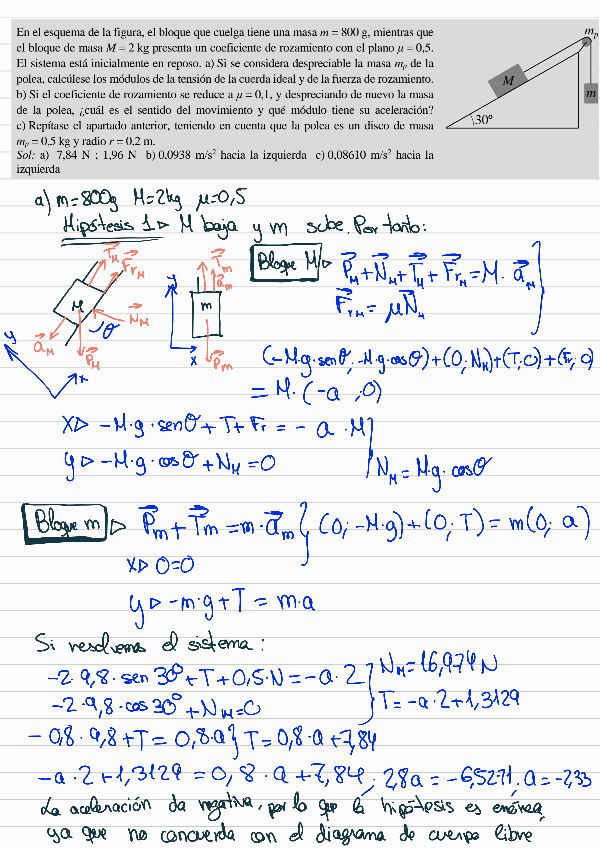 En el esquema de la figura, el bloque que cuelga tiene una masa m = 800 g, mientras que
el bloque de masa M = 2 kg presenta un coeficiente de rozamiento con el plano μ = 0,5.
El sistema está inicialmente en reposo. a) Si se considera despreciable la masa mₚ de la
polea, calcúlese los módulos de la tensión de la cuerda ideal y de la fuerza de rozamiento.
b) Si el coeficiente de rozamiento se reduce a μ = 0,1, y despreciando de nuevo la masa
de la polea, ¿cuál es el sentido del movimiento y qué módulo tiene su aceleración?
c) Repítase el apartado anterior, teniendo en cuenta que la polea es un disco de masa
mₚ = 0,5 kg y radio r = 0,2 m.
Sol: a) 7,84 N ; 1,96 N b) 0,0938 m/s² hacia la izquierda c) 0,08610 m/s² hacia la
izquierda
mₚ
M
m
30°
a) m=800g M=2kg μ=0,5
Hipótesis 1▷ M baja y m sube. Por tanto:
T_M
F_rM
M
N_M
θ
a_M
P_M
y
x
T_m
a_m
m
P_m
y
x
Bloque M▷ P_M+N_M+T_M+F_rM=M·a_M
F_rM=μN_M
(-M·g·senθ, -M·g·cosθ)+(0,N_M)+(T,0)+(Fr,0)
=M·(-a,0)
X▷ -M·g·senθ+T+Fr=-a·M
y▷ -M·g·cosθ+N_M=0
N_M=M·g·cosθ
Bloque m▷ P_m+T_m=m·a_m} (0,-M·g)+(0,T)=m(0,a)
X▷ 0=0
y▷ -m·g+T=m·a
Si resolvemos el sistema:
-2·9,8·sen30°+T+0,5·N=-a·2
-2·9,8·cos30°+N_M=0
N_M=16,974N
T=-a·2+1,3129
-0,8·9,8+T=0,8·a} T=0,8·a+7,84
-a·2+1,3129=0,8·a+7,84; 2,8a=-6,5271; a=-2,33
La aceleración da negativa, por lo que la hipótesis es errónea,
ya que no concuerda con el diagrama de cuerpo libre